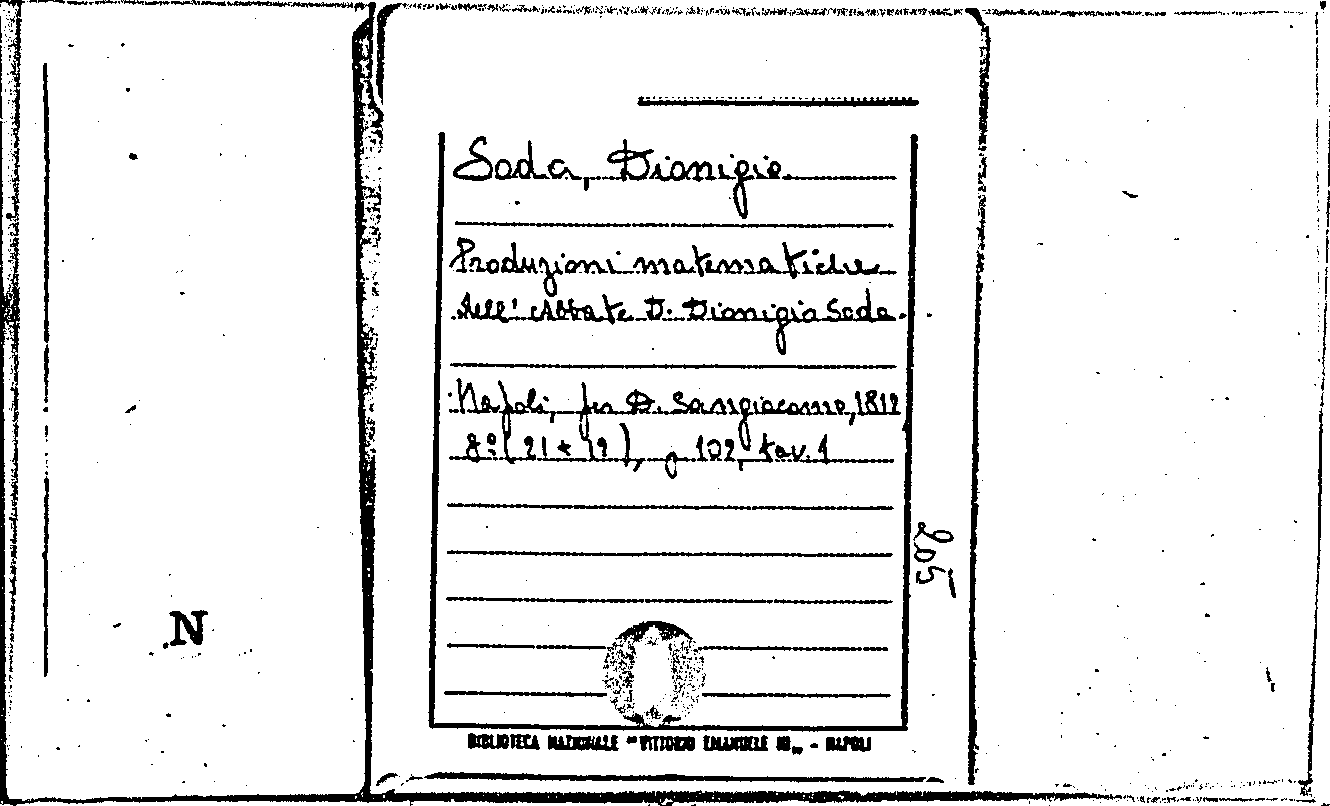 Soda, Dionigio
Produzioni matematiche
dell' Abbate D. Dionigio Soda.
Napoli, per D. Sangiacomo, 1812
8º (21 x 12), p 102, tav. 1
205
N
BIBLIOTECA NAZIONALE "VITTORIO EMANUELE III" - NAPOLI